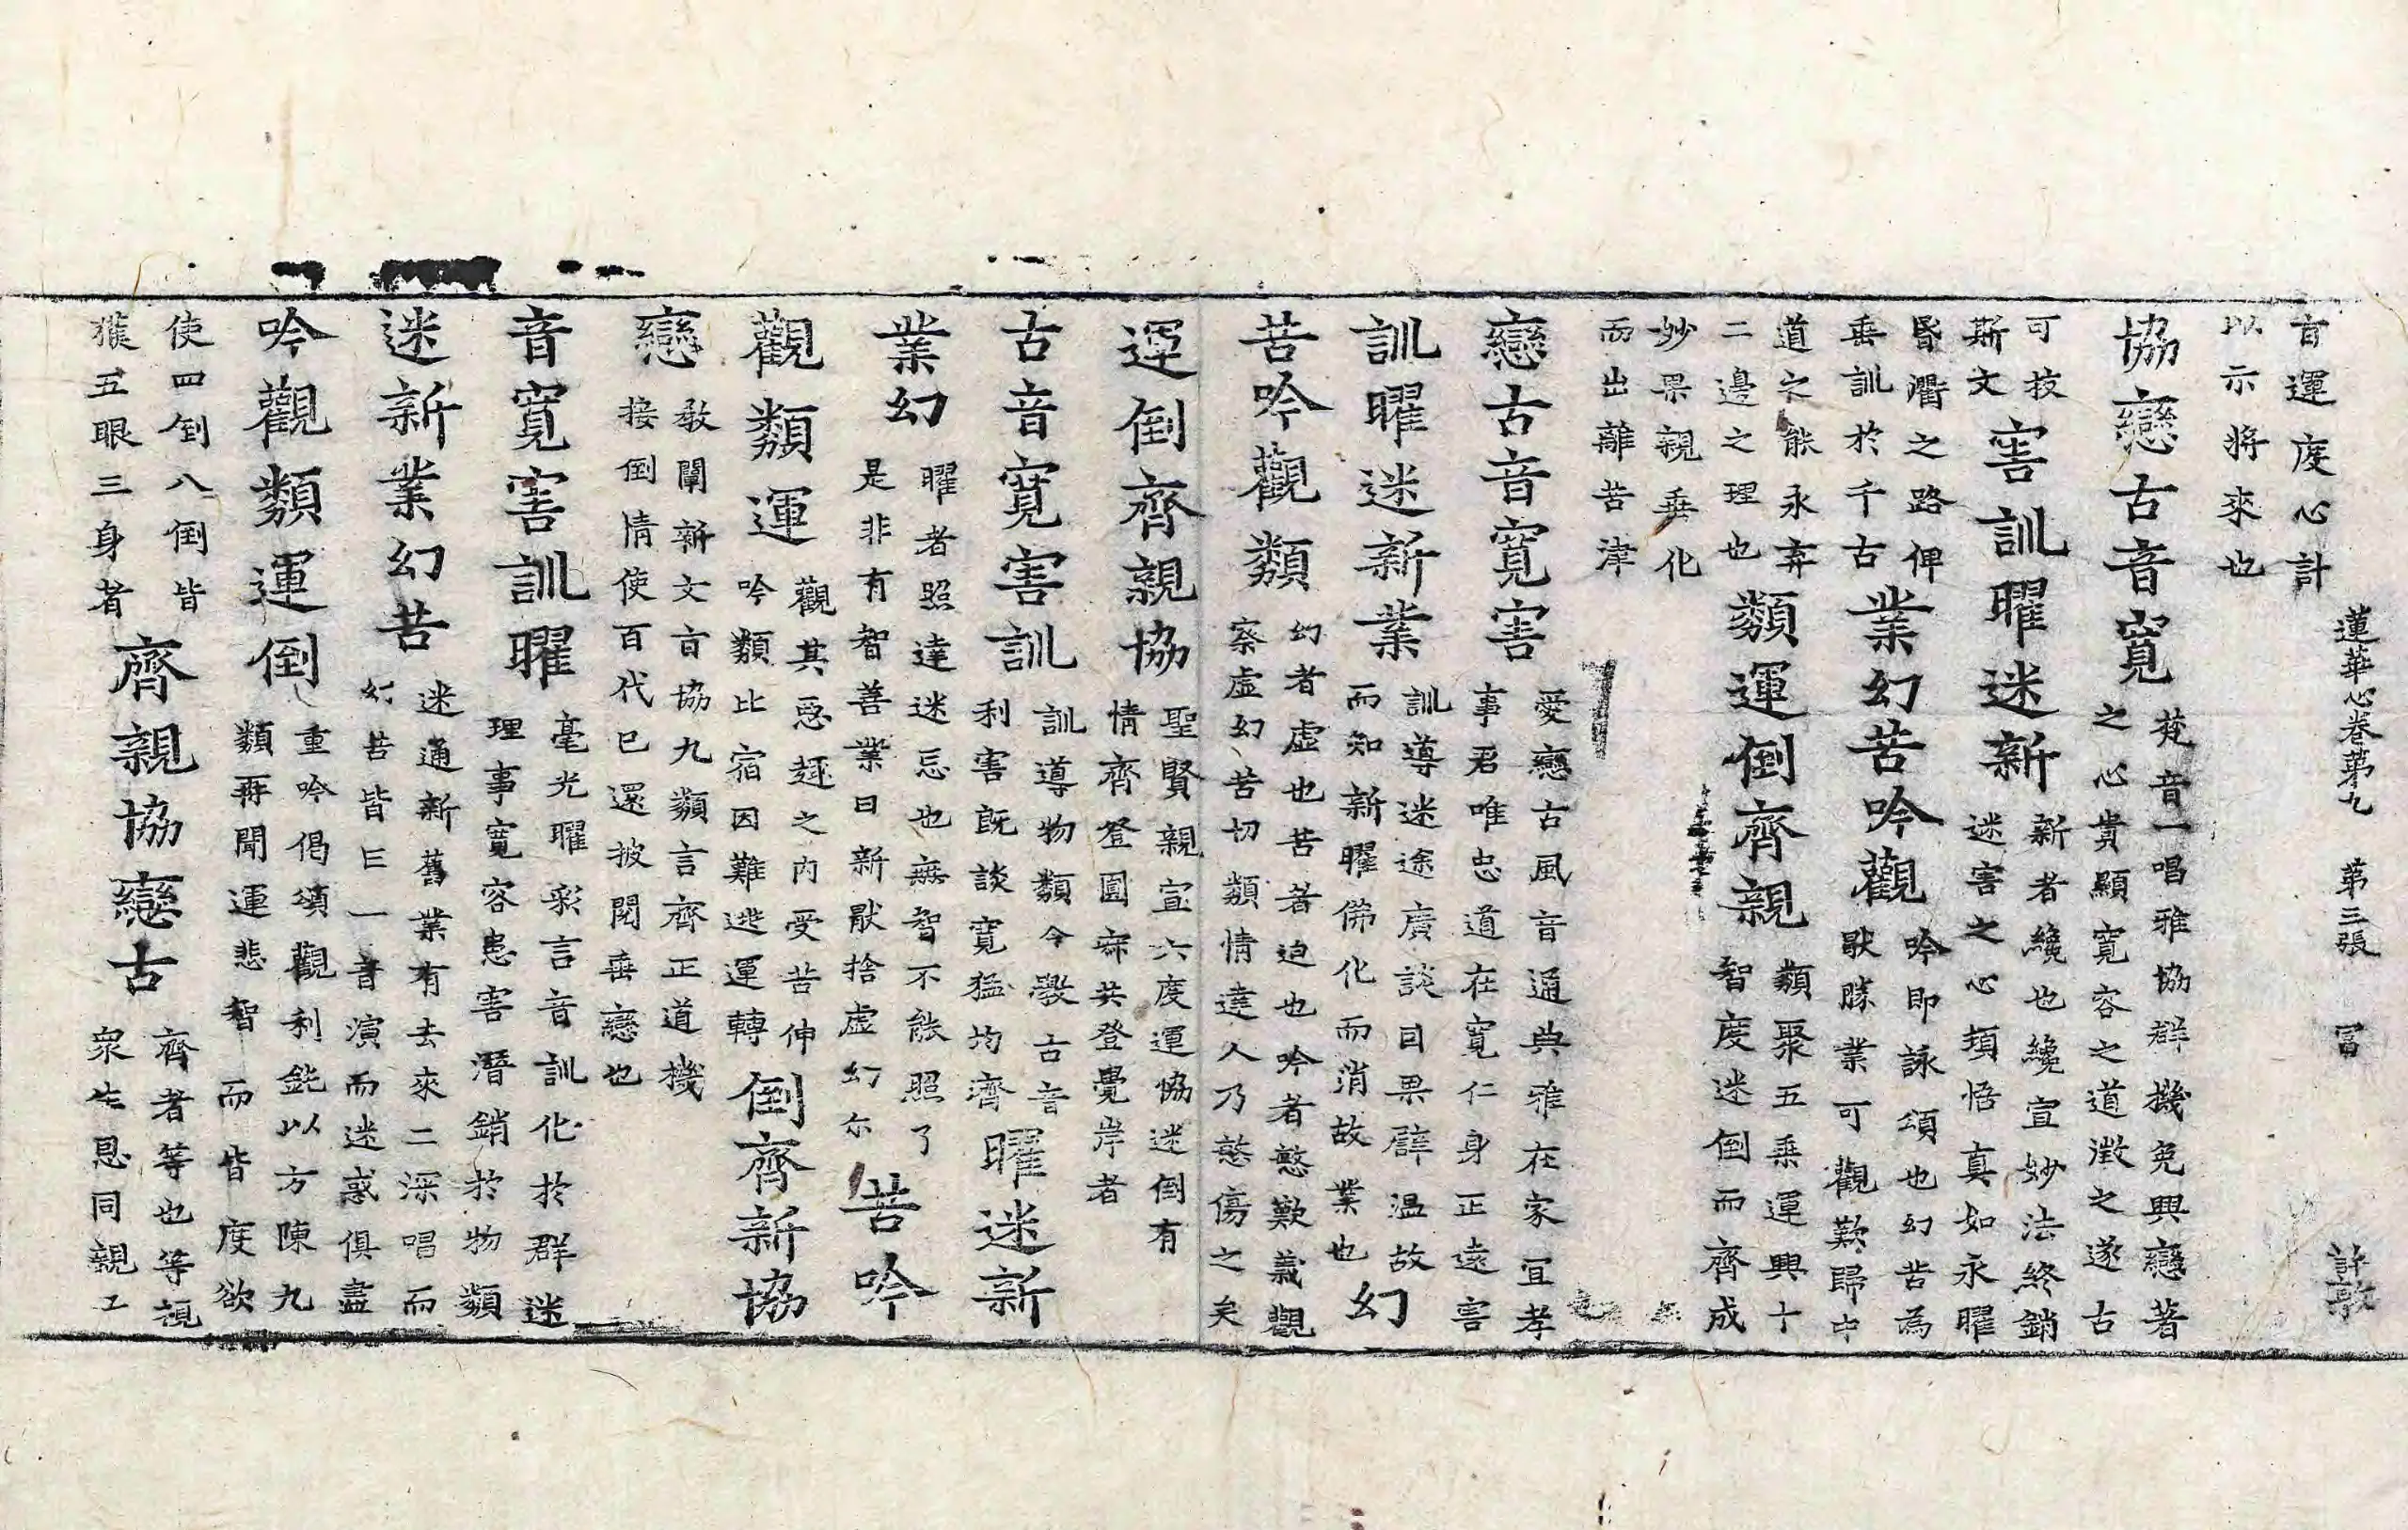 旨運度心計
以示將來也
蓮華心卷第九 第三張 冨 許敦
協戀古音寬
梵音一唱雅協群機免興戀著
之心貴顯寬容之道澂之遂古
可技
斯文
害訓曜迷新
新者纔也纔宣妙法終銷
迷害之心頊悟真如永曜
昏衢之路俾
垂訓於千古
業幻苦吟觀
吟即詠頌也幻苦為
猒勝業可觀歎歸中
道之能永弃
二邊之理也
類運倒齊親
類聚五乘運興十
智度迷倒而齊成
妙果親垂化
而出離苦津
戀古音寬害
愛戀古風音通典雅在家宜孝
事君唯忠道在寬仁身正遠害
訓曜迷新業
訓導迷途廣談因果辟溫故
而知新曜俻化而消故業也
幻
苦吟觀類
幻者虛也苦者迫也吟者慜歎義觀
察虛幻苦切類情達人乃慜傷之矣
運倒齊親協
聖賢親宣六度運協迷倒有
情齊登圓寂共登覺岸者
古音寬害訓
訓導物類令斆古音
利害旣談寬猛均濟
曜迷新
業幻
曜者照達迷忌也無智不能照了
是非有智善業日新猒捨虛幻尔
苦吟
觀類運
觀其惡趣之內受苦伸
吟類比宿因難逃運轉
倒齊新協
戀
敎闡新文旨協九類言齊正道機
接倒情使百代已還披閱垂戀也
音寬害訓曜
毫光曜彩言音訓化於群迷
理事寬容患害潛銷於物類
迷新業幻苦
迷通新舊業有去來二深唱而
幻苦皆亡一音演而迷惑俱盡
吟觀類運倒
重吟偈頌觀利鈍以方陳九
類再聞運悲智而皆度欲
使四倒八倒皆
獲五眼三身者
齊親協戀古
齊者等也等視
衆生恩同親工